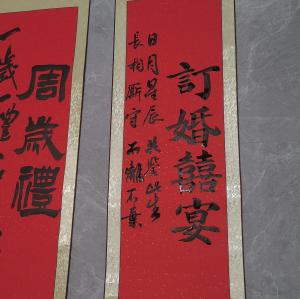 訂婚囍宴
日月星辰 共鑒此生
長相厮守 不離不棄
周歲禮
一歲一禮